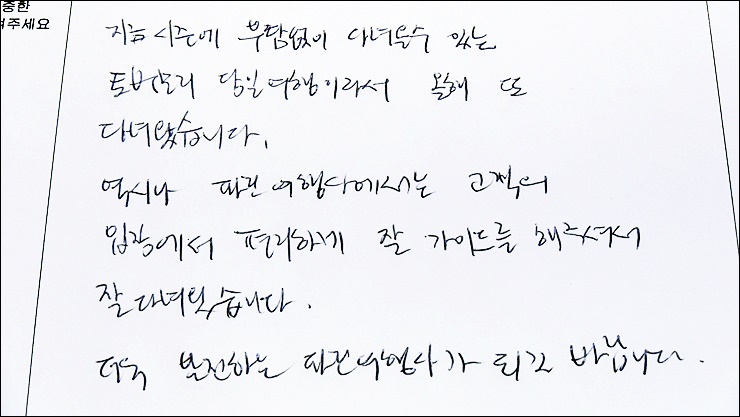 중한
겨주세요
지금 시즌에 부담없이 다녀올수 있는
토버모리 당일여행이라서 올해 또
다녀왔습니다.
역시나 파란여행사에서는 고객의
입장에서 편리하게 잘 가이드를 해주셔서
잘 다녀왔습니다.
더욱 발전하는 파란여행사가 되길 바랍니다.